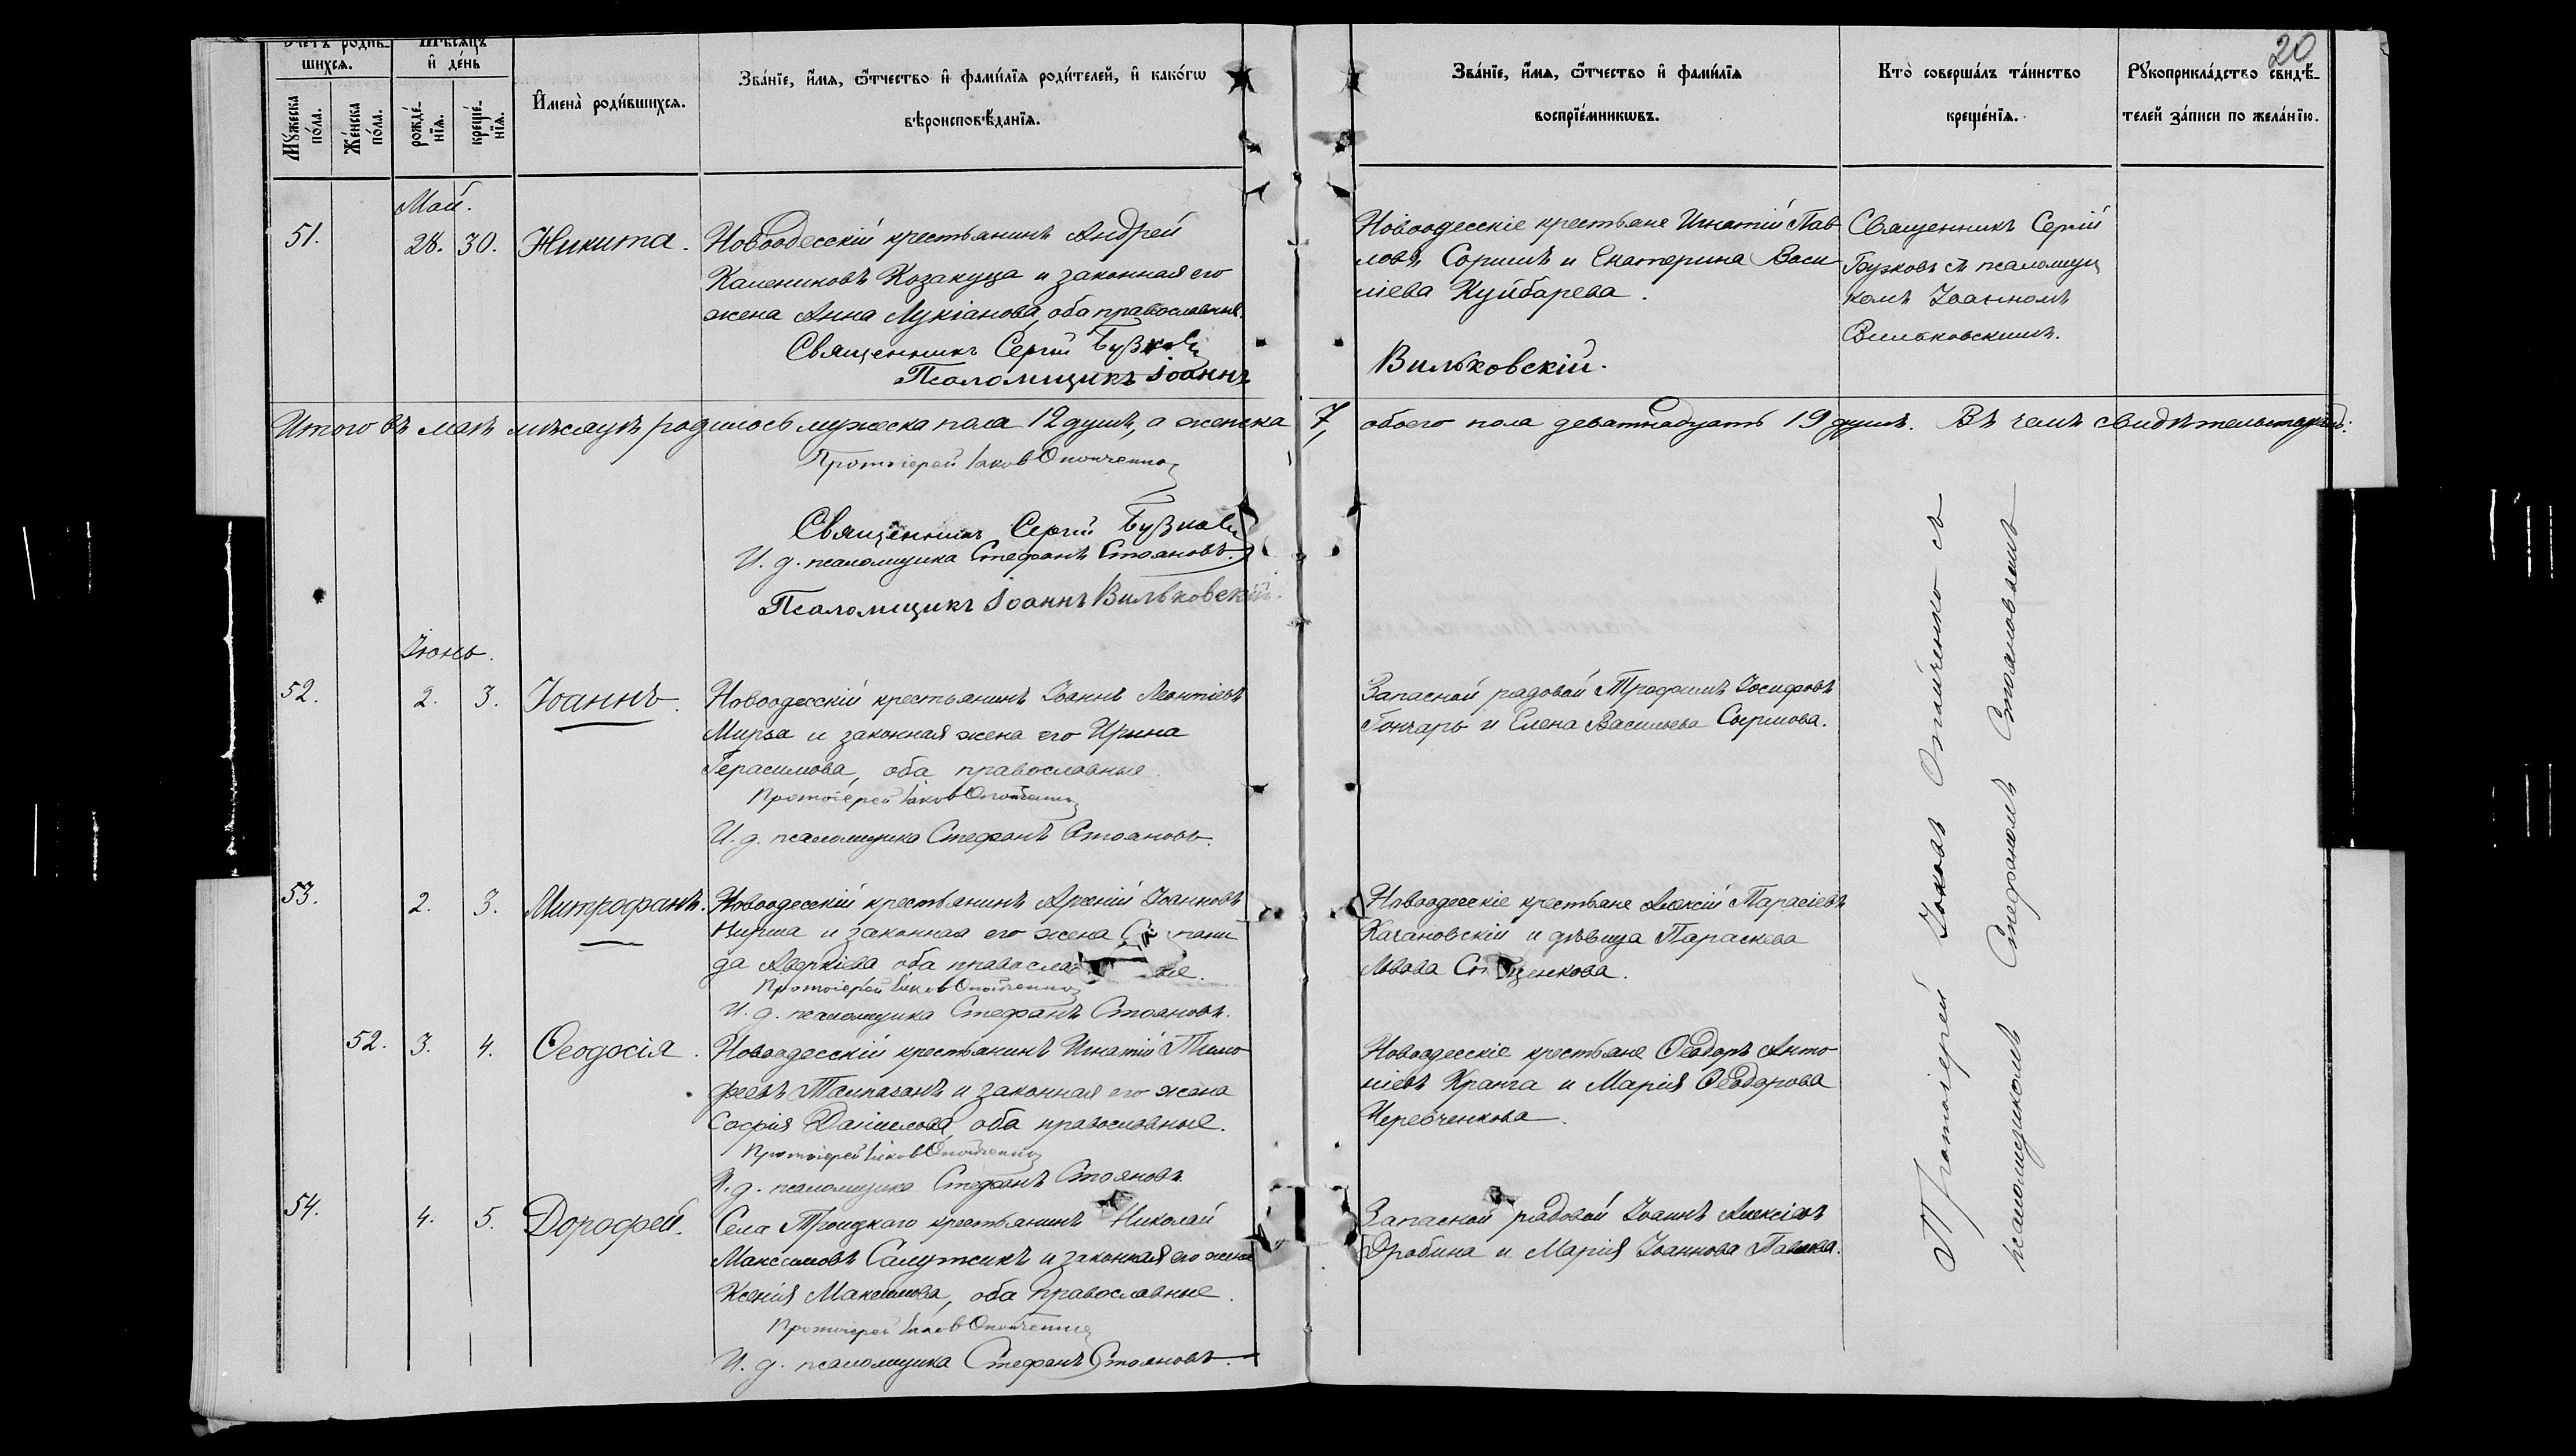 20
Счетъ роди́в-
шихся.
Мѣсяцъ
и҆ де́нь
Мꙋ́жеска по́ла.
Же́нска по́ла.
рожде́-нїѧ.
креще́-нїѧ.
И҆мена̀ роди́вшихсѧ.
Зва́нїе, и҆́мѧ, ѻ҆́тчество и҆ фами́лїѧ роди́телей, и҆ како́гѡ
вѣроисповѣ́данїѧ.
Зва́нїе, и҆́мѧ, ѻ҆́тчество и҆ фами́лїѧ
воспрїе́мникѡвъ.
Кто̀ соверша́лъ та́инство
креще́нїѧ.
Рꙋкоприкла́дство свидѣ́-
телей за́писи по жела́нїю.
Май.
51.
28. 30.
Никита.
Новоодесскій крестьянинъ Андрей
Калениковъ Козакуца и законная его
жена Анна Лукіанова, оба православные.
Священникъ Сергій Бузковъ
Псаломщикъ Іоаннъ
Новоодесскіе крестьяне Игнатій Пав
ловъ и Екатерина Васи
ліева Куйбарева.
Вильковскій.
Священникъ Сергій
Бузковъ съ псаломщи
комъ Іоанномъ
Вильковскимъ.
Итого въ маѣ мѣсяцѣ родилось мужеска пола 12 душъ, а женска 7, обоего пола девятнадцать 19 душъ. Въ чемъ свидѣтельствуемъ:
Протоіерей Іаковъ Опойченко
Священникъ Сергій Бузковъ
И. д. псаломщика Стефанъ Стояновъ.
Псаломщикъ Іоаннъ Вильковскій.
Іюнь.
52.
2. 3.
Іоаннъ.
Новоодесскій крестьянинъ Іоаннъ Леонтіевъ
Мирза и законная жена его Ирина
Герасимова, оба православные.
Протоіерей Іаковъ Опойченко
И. д. псаломщика Стефанъ Стояновъ.
Запасной рядовой Трофимъ Іосифовъ
Гончаръ и Елена Васильева Сырмова.
Протоіерей Іаковъ Опойченко съ
псаломщикомъ Стефаномъ Стояновымъ
53.
2. 3.
Митрофанъ.
Новоодесскій крестьянинъ Арсеній Іоанновъ
Кирша и законная его жена
да Аверкіева оба православные.
Протоіерей Іаковъ Опойченко
И. д. псаломщика Стефанъ Стояновъ.
Новоодесскіе крестьяне Алексій Тарасіевъ
Качановскій и дѣвица Параскева
Львова
52.
3. 4.
Ѳеодосія.
Новоодесскій крестьянинъ Игнатій Тимо
феевъ Талпазанъ и законная его жена
Софія Даніилова, оба православные.
Протоіерей Іаковъ Опойченко
И. д. псаломщика Стефанъ Стояновъ.
Новоодесскіе крестьяне Ѳеодоръ Анто
ніевъ Кранга и Марія Ѳеодорова
Черевченкова.
54.
4. 5.
Дорофей.
Села Троицкаго крестьянинъ Николай
Максимовъ Салужикъ и законная его жена
Ксенія Максимова, оба православные.
Протоіерей Іаковъ Опойченко
И. д. псаломщика Стефанъ Стояновъ.
Запасной рядовой Іоаннъ Алексіевъ
Дробина и Марія Іоаннова Павлова.